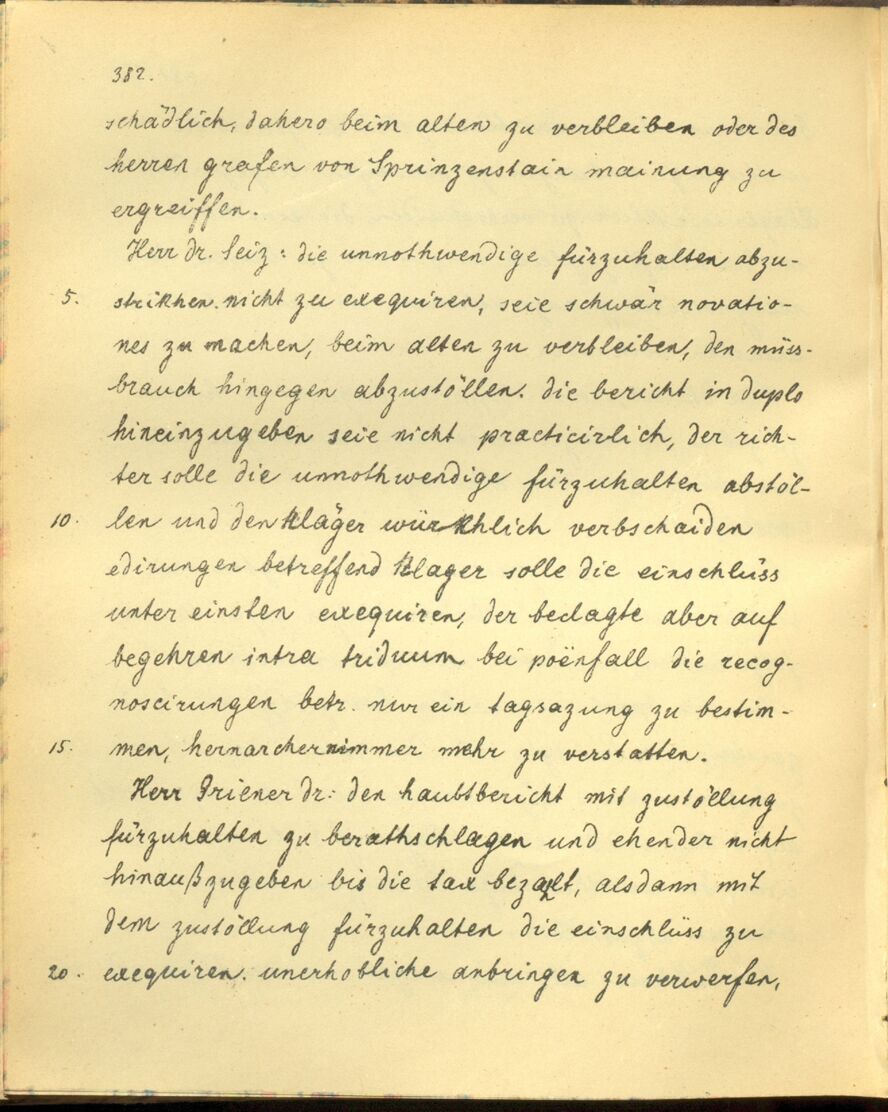 382.
schädlich, dahero beim alten zu verbleiben oder des
herren grafen von Sprinzenstain mainung zu
ergreiffen.
Herr dr. Seiz: die unnothwendige fürzuhalten abzu-
5. strikhen. nicht zu exequiren, seie schwär novatio-
nes zu machen, beim alten zu verbleiben, den müss-
brauch hingegen abzustöllen. die bericht in duplo
hineinzugeben seie nicht practicirlich, der rich-
ter solle die unnothwendige fürzuhalten abstöl-
10. len und den kläger würkhlich verbschaiden
edirungen betreffend klager solle die einschlüss
unter einsten exequiren, der beclagte aber auf
begehren intra triduum bei poënfall die recog-
noscirungen betr. nur ein tagsazung zu bestim-
15. men, hernarcher nimmer mehr zu verstatten.
Herr Griener dr: den haubtbericht mit zustöllung
fürzuhalten zu berathschlagen und ehender nicht
hinaußzugeben bis die tax bezahlt, alsdann mit
dem zustöllung fürzuhalten die einschlüss zu
20. exequiren. unerhobliche anbringen zu verwerfen,